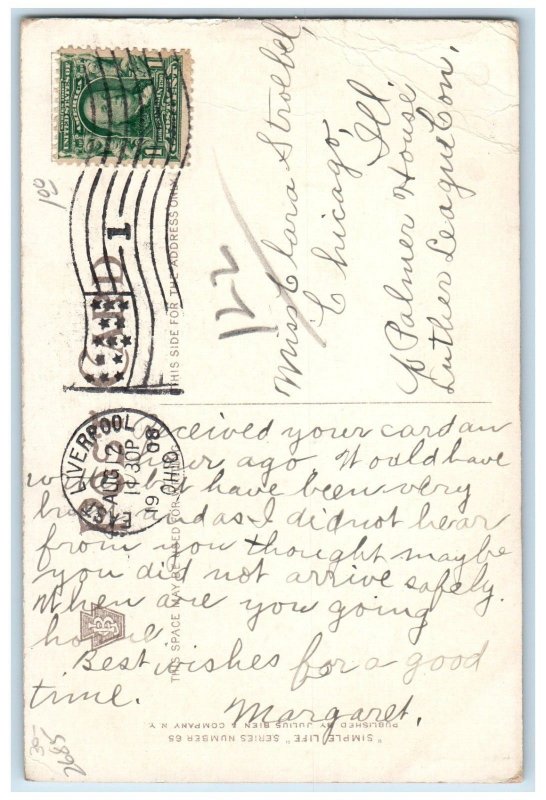 UNITED STATES OF AMERICA
POST CARD
THIS SIDE FOR THE ADDRESS ONLY.
THIS SPACE MAY BE USED FOR
1
EAST LIVERPOOL OHIO
AUG 12
1130P
1908
100
122
Miss Clara Stroebel,
Chicago,
Ill.
℅ Palmer House
Luther League Con.
Received your card an
hour ago. Would have
but have been very
and as I did not hear
from you thought maybe
you did not arrive safely.
When are you going
home.
Best wishes for a good
time.
Margaret.
"SIMPLE LIFE" SERIES NUMBER 65
PUBLISHED BY JULIUS BIEN & COMPANY N Y
JB
2685